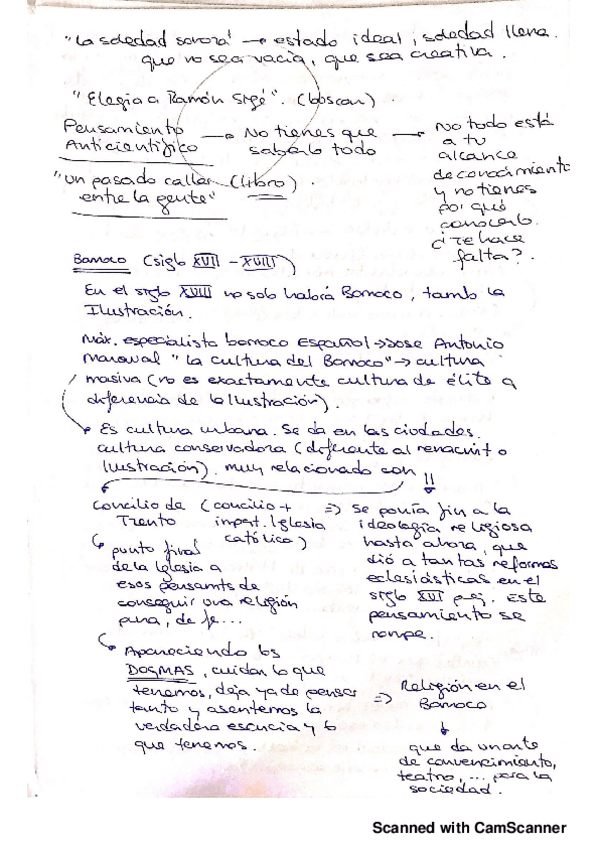 "La soledad sonora" → estado ideal, soledad llena.
que no sea vacía, que sea creativa.
"Elegía a Ramón Sigé". (buscar)
Pensamiento
Anticientífico
→ No tienes que
saberlo todo
→ No todo está
a tu
alcance
de conocimiento
y no tienes
por qué
conocerlo.
¿te hace
falta?.
"un pasado caller (libro).
entre la gente"
Barroco (siglo XVII - XVIII)
En el siglo XVIII no solo habrá Barroco, tamb la
Ilustración.
Máx. especialista barroco Español → Jose Antonio
Maravall "La cultura del Barroco" → cultura
masiva (no es exactamente cultura de élite a
diferencia de la Ilustración).
Es cultura urbana. Se da en las ciudades.
cultura conservadora (diferente al renacimto o
Ilustración). muy relacionado con
Concilio de (concilio +
Trento impat. Iglesia
católica)
⇒ Se ponía fin a la
ideología religiosa
hasta ahora, que
dió a tantas reformas
eclesiásticas en el
siglo XVI p.ej. Este
pensamiento se
rompe.
punto final
de la Iglesia a
esos pensamts de
conseguir una religión
pura, de fe...
Apareciendo los
DOGMAS, cuidan lo que
tenemos, deja ya de pensar
tanto y asentemos la
verdadera esencia y lo
que tenemos.
⇒ Religión en el
Barroco
↓
que da un arte
de convencimiento,
teatro, ... para la
sociedad.
Scanned with CamScanner